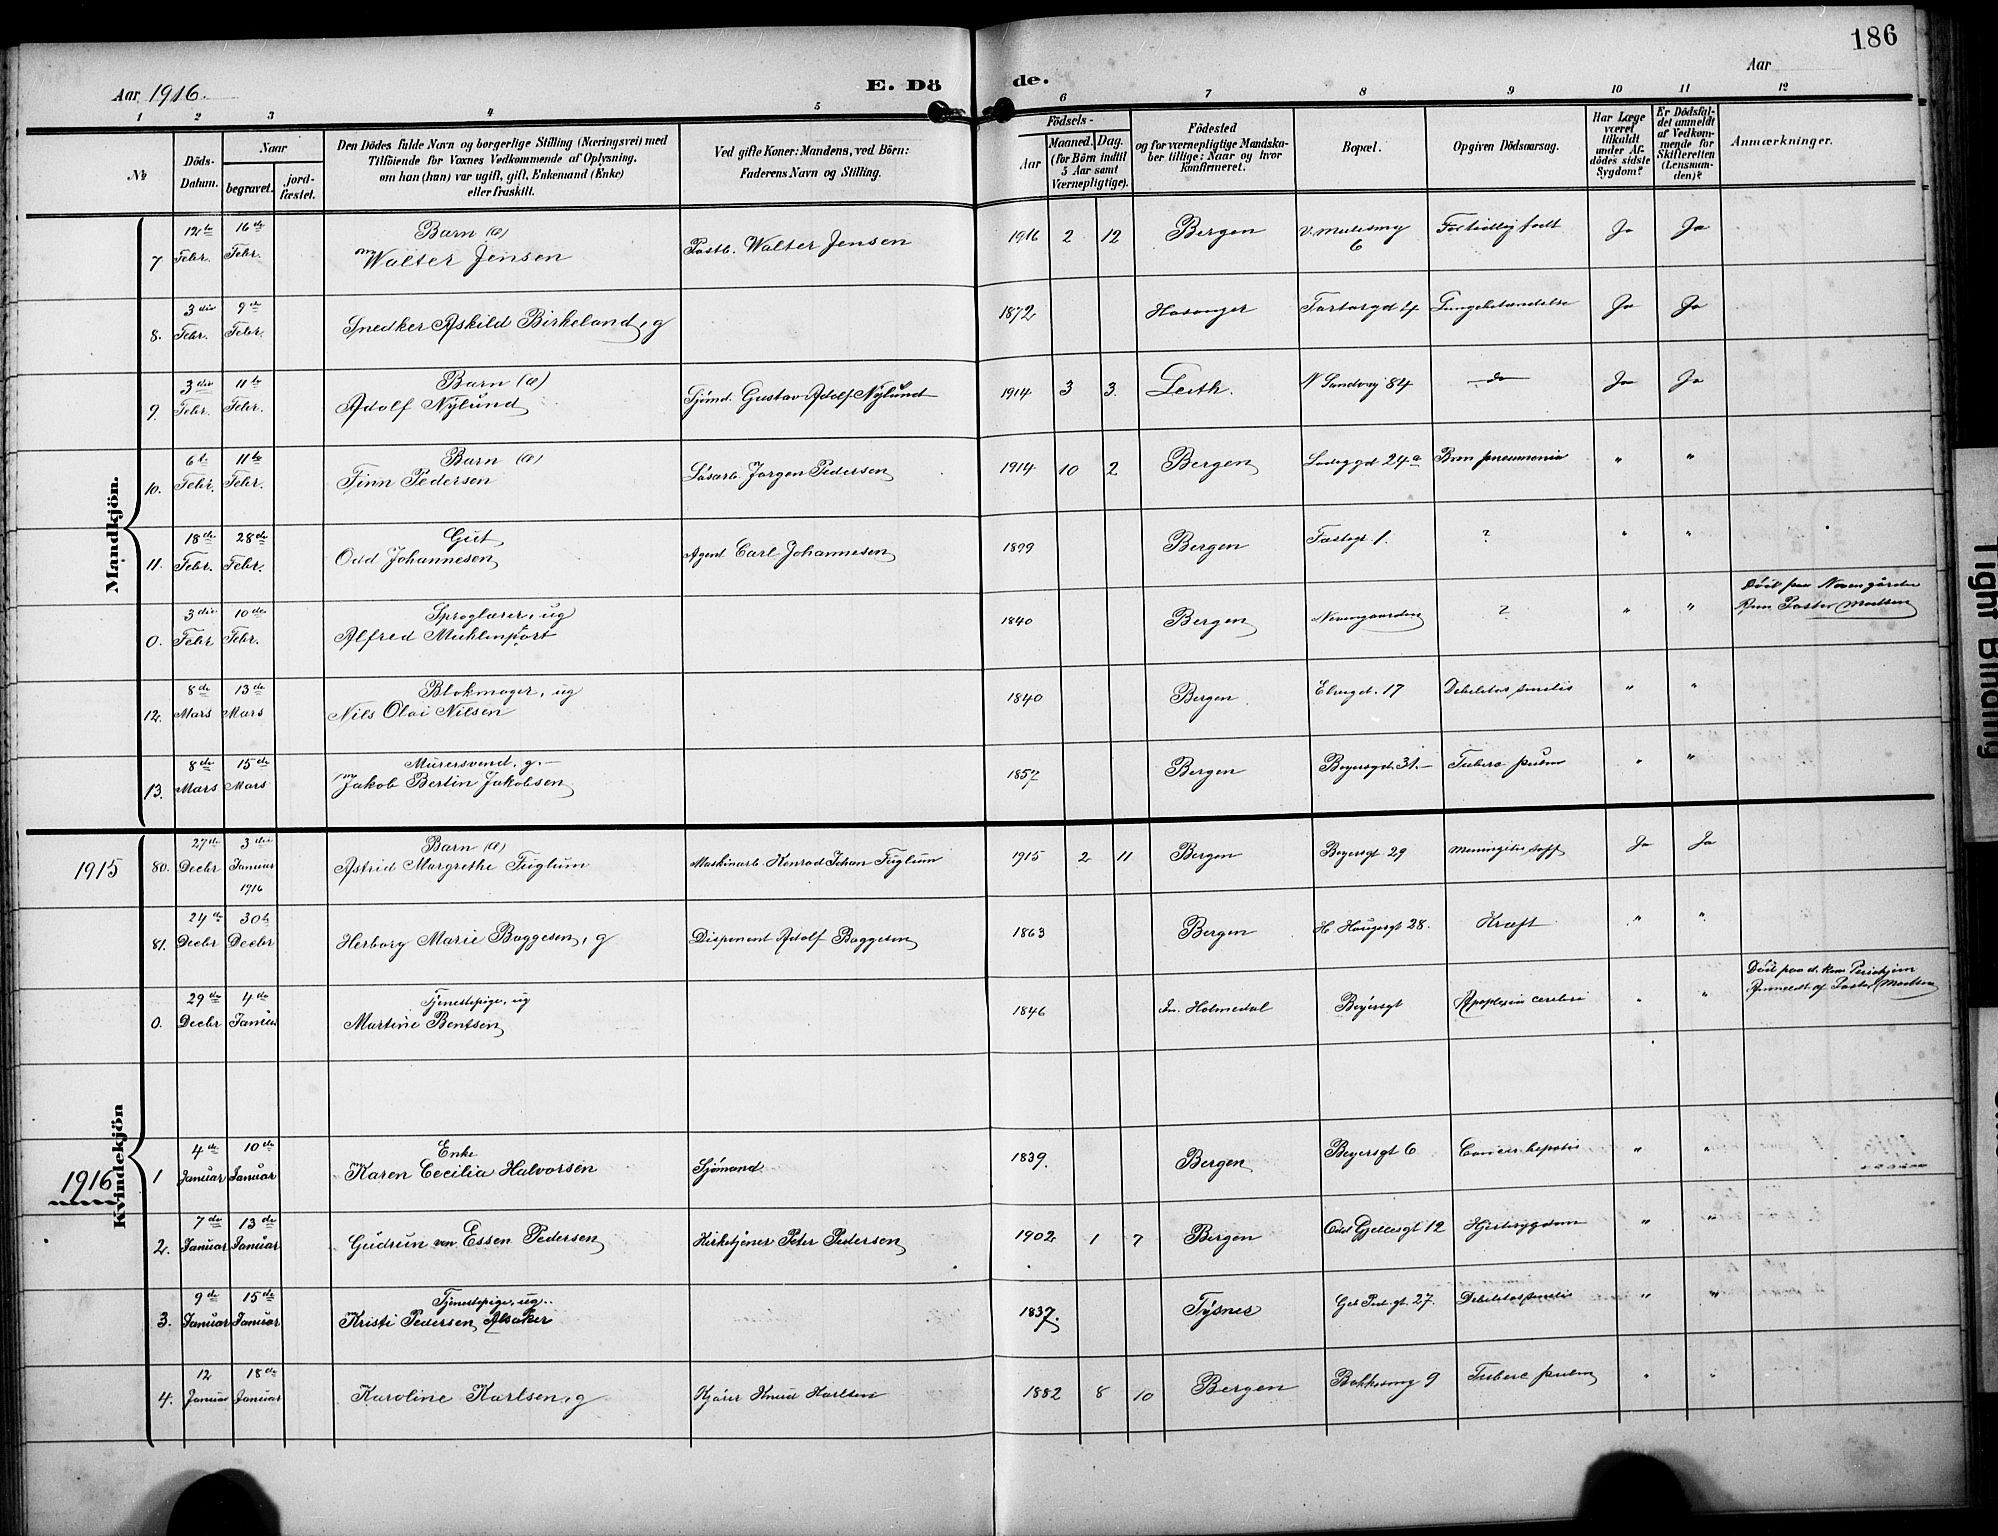 186
Aar 1916.
E. Dö de.
Aar
1 2 3 4 5 6 7 8 9 10 11 12
No
Döds-Datum.
Naar
begravet.
jord-fæstet.
Den Dödes fulde Navn og borgerlige Stilling (Næringsvei) med
Tilföiende for Voxnes Vedkommende af Oplysning,
om han (hun) var ugift, gift, Enkemand (Enke)
eller fraskilt.
Ved gifte Koner: Mandens, ved Börn:
Faderens Navn og Stilling.
Födsels-
Aar
Maaned. Dag.
(for Börn indtil
5 Aar samt
Værnepligtige).
Födested
og for værnepligtige Mandska-
ber tillige: Naar og hvor
konfirmeret.
Bopæl.
Opgiven Dödsaarsag.
Har Læge
været
tilkaldt
under Af-
dödes sidste
Sygdom?
Er Dödsfal-
det anmeldt
af Vedkom-
mende for
Skifteretten
(Lensman-
den)?
Anmærkninger.
Mandkjön.
7 12te Febr. 16de Febr. Barn (æ) Walter Jensen Postb. Walter Jensen 1916 2 12 Bergen 6 For tidlig født Ja Ja
8. 3die Febr. 9de Febr. Snedker Askild Birkeland, g 1872 Hosanger Tartargd 4 Lungebetændelse Ja Ja
9 3die Febr. 11te Febr. Barn (æ) Adolf Nylund Sjömd. Gustav Adolf Nylund 1914 3 3. Leith. N Sandvig 84 do Ja Ja
10. 6te Febr. 11te Febr. Barn (æ) Finn Pedersen Lösarb. Jörgen Pedersen 1914 10 2 Bergen 24a Bron pneumonia " "
11. 18de Febr. 28de Febr. Gut Odd Johannesen Agent Carl Johannesen 1899 Bergen 1. ? " "
0. 3die Febr 10de Febr. Sproglærer, ug Alfred Mechlenport 1840 Bergen Nevengaarden ? " " Död paa Nevengården
Anm Pastor Madsen
12. 8de Mars 13de Mars Blokmager, ug Nils Olai Nilsen 1840 Bergen. Elvegd. 17 Debilitas senilis " "
13. 8de Mars 15de Mars Murersvend, g. Jakob Bertin Jakobsen 1857 Bergen Beyersgd. 31. Tuberc pulm " "
Kvindekjön
1915 80. 27de Decbr 3die Januar 1916 Barn (æ) Astrid Margrethe Fuglum Maskinarb. Konrad Johan Fuglum 1915 2 11 Bergen Beyersgt 29 Ja Ja
81. 24de Decbr 30te Decbr Herborg Marie Baggesen, g Disponent Adolf Baggesen 1863 Bergen H Haugesgt 28. Kræft " "
0. 29de Decbr 4de Januar Tjenestepige, ug Martine Bentsen 1846 Holmedal Beyersgt Apoplexia cerebri " " Död paa d. kom
Anmeldt af Pastor Madsen
1916 1 4de Januar 10de Januar Enke Karen Cecilia Halvorsen Sjömand 1839. Bergen Beyersgt 6 Cancer hepatis " "
2. 7de Januar 13de Januar Gudrun von Essen Pedersen Kirketjener Peter Pedersen 1902 1 7 Bergen Odd Gjellesgt 12 Hjertesygdom " "
3. 9de Januar 15de Januar Tjenestepige, ug. Kristi Pedersen Alsaker 1837. Tysnes 27. Debilitas senilis " "
4. 12 Januar 18de Januar Karoline Karlsen, g Kjörer Knud Karlsen 1882 8 10 Bergen 9 Tuberc pulm " "
Tight Binding